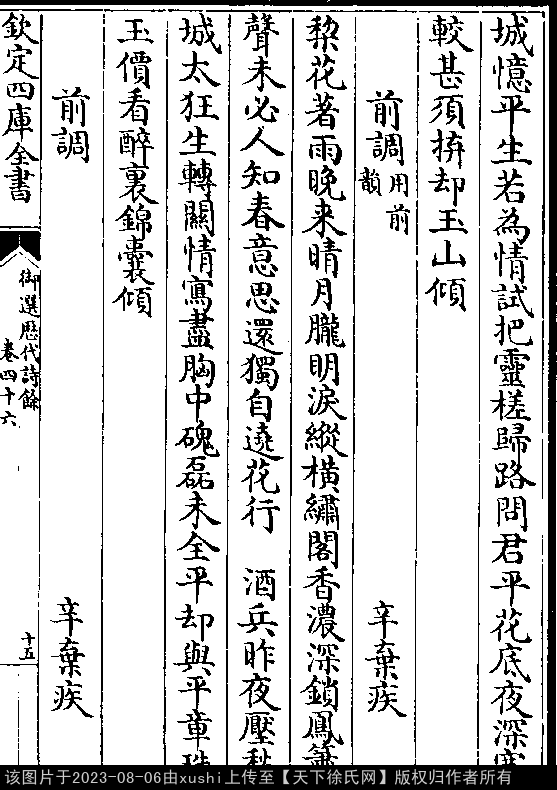 城憶平生若為情試把靈槎歸路問君平花底夜深寒
較甚須拚却玉山傾
前調用前韻 辛棄疾
棃花著雨晩来晴月朧明淚縱横繡閣香濃深鎖鳳簫
聲未必人知春意思還獨自遶花行 酒兵昨夜壓愁
城太狂生轉關情寫盡胸中磈磊未全平却與平章珠
玉價看醉裏錦囊傾
前調 辛棄疾
欽定四庫全書
御選歴代詩餘
卷四十六
十五
该图片于2023-08-06由xushi上传至【天下徐氏网】版权归作者所有